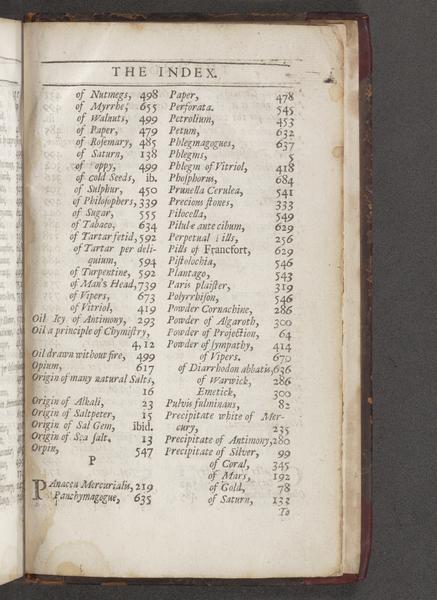 THE INDEX.
of Nutmegs, 498
of Myrrhe, 655
of Walnuts, 499
of Paper, 479
of Rosemary, 485
of Saturn, 138
of oppy, 499
of cold Seeds, ib.
of Sulphur, 450
of Philosophers, 339
of Sugar, 555
of Tabaco, 634
of Tartar fetid, 592
of Tartar per deli-
quium, 594
of Turpentine, 592
of Man's Head, 739
of Vipers, 673
of Vitriol, 419
Oil Icy of Antimony, 293
Oil a principle of Chymistry,
4, 12
Oil drawn without fire, 499
Opium, 617
Origin of many natural Salts,
16
Origin of Alkali, 23
Origin of Saltpeter, 15
Origin of Sal Gem, ibid.
Origin of Sea salt, 13
Orpin, 547
P
PAnacea Mercurialis, 219
Panchymagogue, 635
Paper, 478
Perforata. 545
Petrolium, 453
Petum, 632
Phlegmagogues, 637
Phlegms, 5
Phlegm of Vitriol, 418
Phosphorus, 684
Prunella Cerulea, 541
Precious stones, 333
Pilocella, 549
Pilulæ ante cibum, 629
Perpetual ills, 256
Pills of Francfort, 629
Pistolochia, 546
Plantago, 543
Paris plaister, 319
Polyrrhison, 546
Powder Cornachine, 286
Powder of Algaroth, 300
Powder of Projection, 64
Powder of sympathy, 414
of Vipers. 670
of Diarrhodon abbatis, 636
of Warwick, 286
Emetick, 300
Pulvis fulminans, 82
Precipitate white of Mer-
cury, 235
Precipitate of Antimony, 280
Precipitate of Silver, 99
of Coral, 345
of Mars, 192
of Gold, 78
of Saturn, 132
To